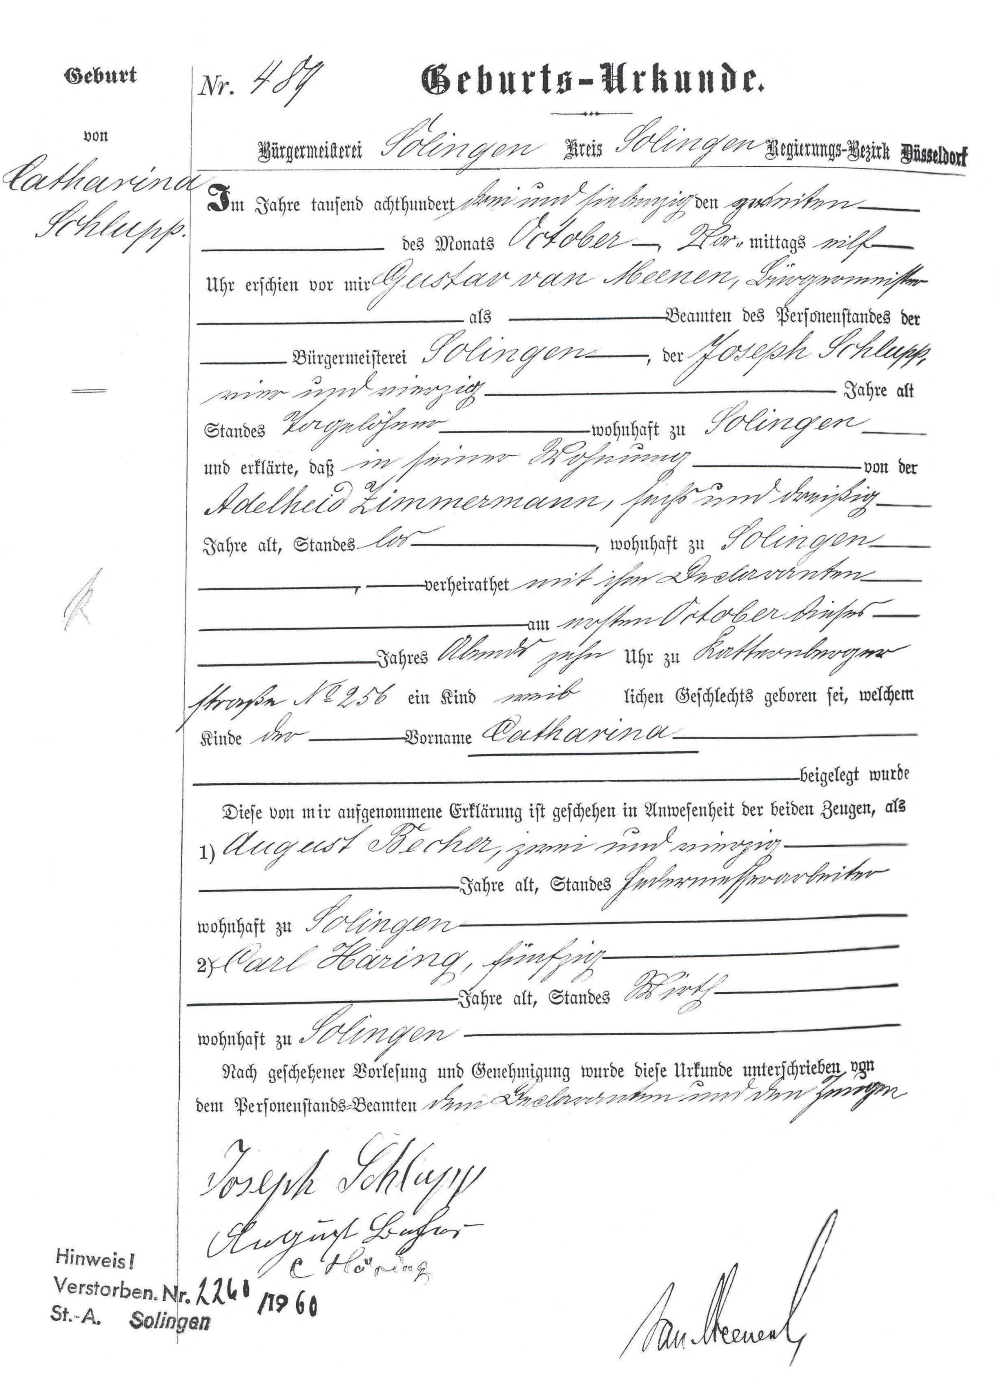 Geburt
von
Catharina
Schlupp.
Nr. 489
Geburts-Urkunde.
Bürgermeisterei Solingen Kreis Solingen Regierungs-Bezirk Düsseldorf
Im Jahre tausend achthundert drei und siebenzig den zweiten
des Monats October, Vor-mittags eilf
Uhr erschien vor mir Gustav van Meenen, Bürgermeister
als Beamten des Personenstandes der
Bürgermeisterei Solingen, der Joseph Schlupp,
vier und vierzig Jahre alt
Standes Tagelöhner wohnhaft zu Solingen
und erklärte, daß in seiner Wohnung von der
Adelheid Zimmermann, sechs und dreißig
Jahre alt, Standes los, wohnhaft zu Solingen
, verheirathet mit ihm Declaranten
am ersten October dieses
Jahres Abends zehn Uhr zu Katternberger
straße No 256 ein Kind weib lichen Geschlechts geboren sei, welchem
Kinde der Vorname Catharina
beigelegt wurde
Diese von mir aufgenommene Erklärung ist geschehen in Anwesenheit der beiden Zeugen, als
1) August Becher, zwei und vierzig
Jahre alt, Standes Federmesserarbeiter
wohnhaft zu Solingen
2) Carl Häring, fünfzig
Jahre alt, Standes Wirth
wohnhaft zu Solingen
Nach geschehener Vorlesung und Genehmigung wurde diese Urkunde unterschrieben von
dem Personenstands-Beamten dem Declaranten und den Zeugen
Joseph Schlupp
August Becher
C Häring
van Meenen
Hinweis!
Verstorben. Nr. 2260/1960
St.-A. Solingen